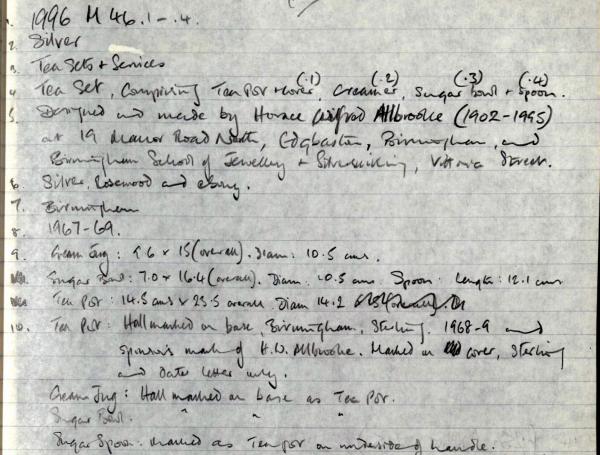 1. 1996 M 46.1-.4.
2. Silver
3. Tea Sets + Services
(.1) (.2) (.3) (.4)
4. Tea Set, Comprising Tea Pot + cover, Creamer, Sugar Bowl + Spoon.
5. Designed and made by Horace Wilfrid Allbrooke (1902-1995)
at 19 Manor Road North, Edgbaston, Birmingham, and
Birmingham School of Jewellery + Silversmithing, Vittoria Street.
6. Silver, Rosewood and ebony.
7. Birmingham
8. 1967-69.
9. Cream Jug: 9.6 x 15 (overall). Diam: 10.5 cms.
Sugar Bowl: 7.0 x 16.4 (overall). Diam. 10.5 cms Spoon: Length: 12.1 cms
Tea Pot: 14.5 cms x 23.5 overall Diam 14.2
10. Tea Pot: Hallmarked on base, Birmingham, Sterling, 1968-9 and
sponsors mark of H.W. Allbrooke. Marked on cover, Sterling
and Date letter only.
Cream Jug: Hall marked on base as Tea Pot.
Sugar Bowl. " " "
Sugar Spoon. Marked as Tea pot on underside of handle.